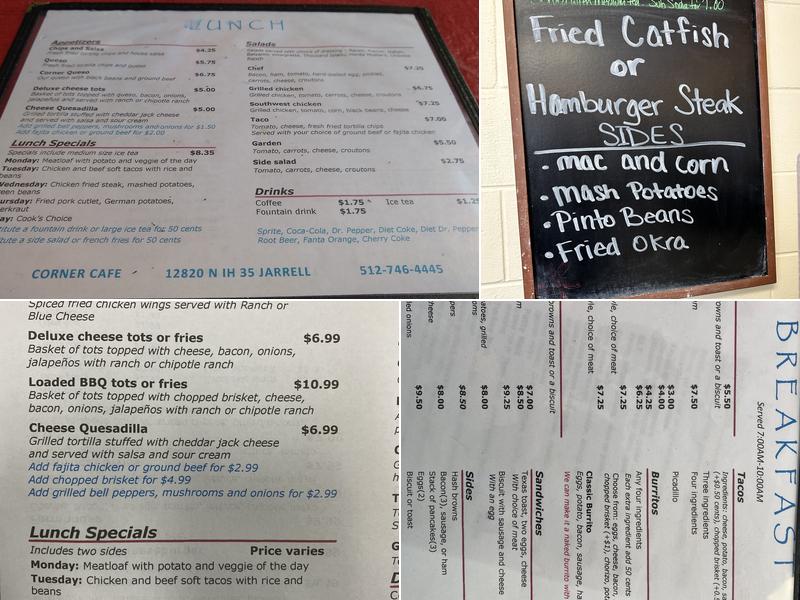 LUNCH
Appetizers
Chips and Salsa $4.25
Fresh fried tortilla chips and house salsa
Queso $5.75
Fresh fried tortilla chips and queso
Corner Queso $6.75
Our queso with black beans and ground beef
Deluxe cheese tots $5.00
Basket of tots topped with queso, bacon, onions,
jalapeños and served with ranch or chipotle ranch
Cheese Quesadilla $5.00
Grilled tortilla stuffed with cheddar jack cheese
and served with salsa and sour cream
Add grilled bell peppers, mushrooms and onions for $1.50
Add fajita chicken or ground beef for $2.00
Lunch Specials
Specials include medium ice tea $8.35
Monday: Meatloaf with potato and veggie of the day
Tuesday: Chicken and beef soft tacos with rice and
beans
Wednesday: Chicken fried steak, mashed potatoes,
green beans
ursday: Fried pork cutlet, German potatoes,
erkraut
ay: Cook's Choice
titute a fountain drink or large ice tea for 50 cents
tute a side salad or french fries for 50 cents
Salads
Chef $7.25
Bacon, ham, tomato, hard-boiled egg, pickles,
carrots, cheese, croutons
Grilled chicken $6.75
Grilled chicken, tomato, carrots, cheese, croutons
Southwest chicken $7.25
Grilled chicken, tomato, corn, black beans, cheese
Taco $7.00
Tomato, cheese, fresh fried tortilla chips
Served with your choice of ground beef or fajita chicken
Garden $5.50
Tomato, carrots, cheese, croutons
Side salad $2.75
Tomato, carrots, cheese, croutons
Drinks
Coffee $1.75 Ice tea $1.25
Fountain drink $1.75
Sprite, Coca-Cola, Dr. Pepper, Diet Coke, Diet Dr. Pepper
Root Beer, Fanta Orange, Cherry Coke
CORNER CAFE 12820 N IH 35 JARRELL 512-746-4445
Fried Catfish
or
Hamburger Steak
SIDES
• mac and corn
• Mash Potatoes
• Pinto Beans
• Fried Okra
Spiced fried chicken wings served with Ranch or
Blue Cheese
Deluxe cheese tots or fries $6.99
Basket of tots topped with cheese, bacon, onions,
jalapeños with ranch or chipotle ranch
Loaded BBQ tots or fries $10.99
Basket of tots topped with chopped brisket, cheese,
bacon, onions, jalapeños with ranch or chipotle ranch
Cheese Quesadilla $6.99
Grilled tortilla stuffed with cheddar jack cheese
and served with salsa and sour cream
Add fajita chicken or ground beef for $2.99
Add chopped brisket for $4.99
Add grilled bell peppers, mushrooms and onions for $2.99
Lunch Specials
Includes two sides Price varies
Monday: Meatloaf with potato and veggie of the day
Tuesday: Chicken and beef soft tacos with rice and
beans
BREAKFAST
Served 7:00AM-10:00AM
Tacos
Ingredients: cheese, potato, bacon, sa
(+$0.50 cents), chopped brisket (+0.5
Three ingredients $3.00
Four ingredients $4.00
Picadillo $4.25
Burritos
Any four ingredients $6.25
Each extra ingredient add 50 cents
Choose from: eggs, cheese, bacon,
chopped brisket (+$1), chorizo, po
Classic Burrito $7.25
Eggs, potato, bacon, sausage, ha
We can make it a naked burrito with
Sandwiches
Texas toast, two eggs, cheese $7.00
With choice of meat $8.50
Biscuit with sausage and cheese
With an egg
Sides
Hash browns
Bacon(3), sausage, or ham
Stack of pancakes(3)
Eggs(2)
Biscuit or toast
owns and toast or a biscuit
$5.50
$7.50
le, choice of meat
$7.25
le, choice of meat
$7.25
rowns and toast or a biscuit
$9.25
atoes, grilled
$8.00
$8.50
$8.00
led onions
$9.50